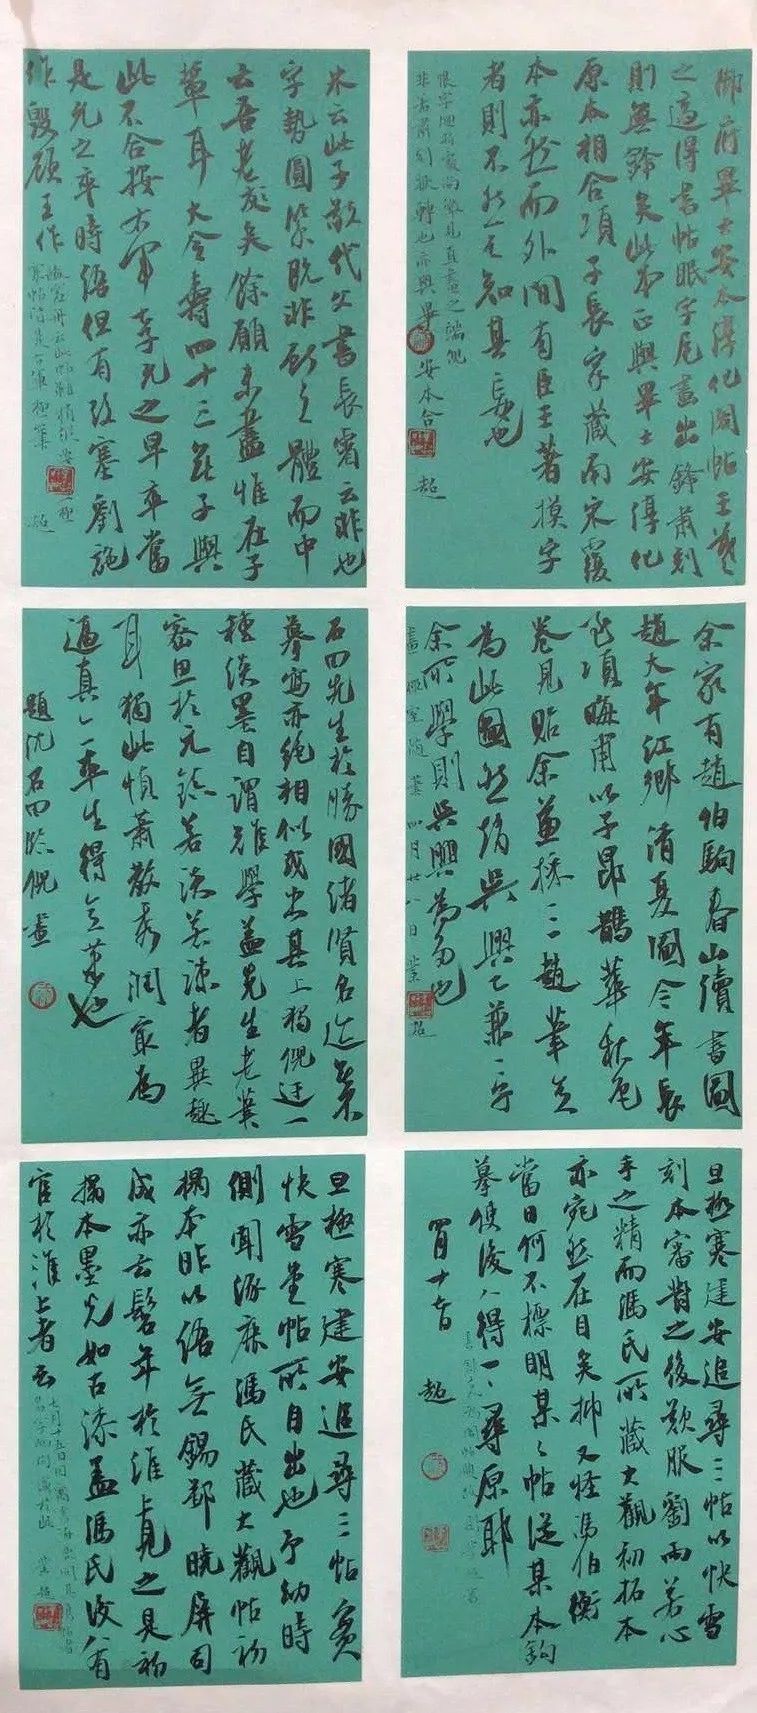 鄉前畢士安本淳化閣帖王羲
之適得書帖眠字尾畫出鋒肅刻
則無鋒矣此本正與畢士安淳化
原本相合項子長家藏南宋覆
本亦然而外間有臣王著摸字
者則不然是知其妄也
非古肅刻狀轉也亦與畢安本合
超
米云此子敬代父書長睿云非也
字勢圓緊既非獻之體而中
云吾老矣餘願未盡惟在子
輩耳大令壽四十三無子與
此不合按右軍之早卒當
是允之卒時語但有改蹇劉說
作毀顧王作
超
余家有趙伯駒春山讀書圖
趙大年江鄉清夏圖今年長
至項晦甫以子昂鵲華秋色
卷見貽余兼採三趙筆意
為此圖然趙吳興已兼二子
余所學則吳興為多也
畫禪室隨筆 四月廿八日 業超
石田先生於勝國諸賢名迹無不
摹寫亦絶相似或出其上獨倪迂一
種淡墨自謂難學蓋先生老筆
密思於元鎮若淡若疎者異趣
耳獨此幀蕭散秀潤最為
逼真亦平生得意筆也
題沈石田臨倪畫
旦極寒建安追尋三帖以快雪
刻本審對之後歎服劉雨若心
手之精而馮氏所藏大觀初拓本
亦宛然在目矣抑又怪馮伯衡
當日何不標明某某帖從某本鈎
摹使後人得一一尋原耶
超
旦極寒建安追尋三帖實
快雪堂帖所自出也予幼時
側聞涿鹿馮氏藏大觀帖初
搨本昨以語無錫鄒曉屏司
成亦云髫年於淮上見之是初
搨本墨光如古漆蓋馮氏後人有
官於淮上者云
業超